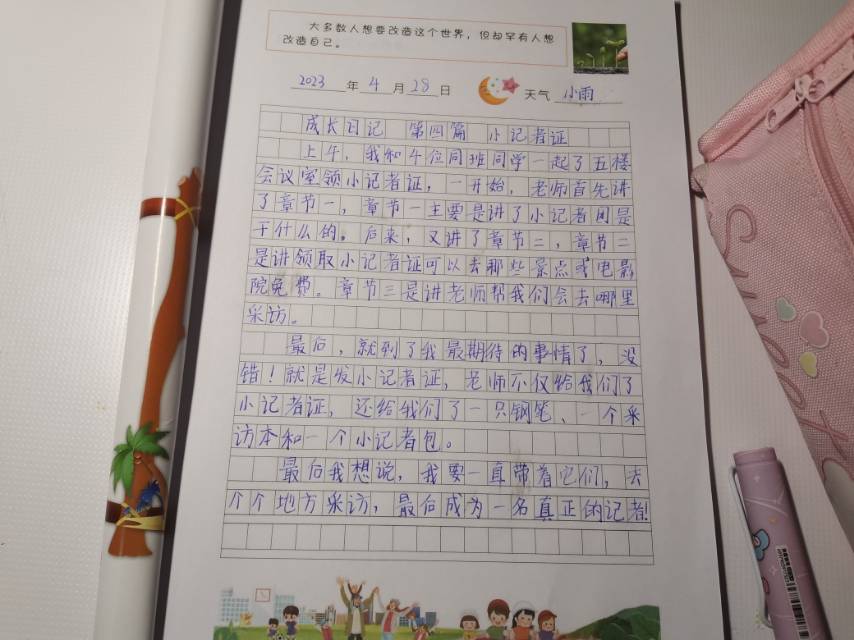 大多数人想要改造这个世界，但却罕有人想
改造自己。
2023年4月28日 天气 小雨
成长日记 第四篇 小记者证
上午，我和午位同班同学一起了五楼
会议室领小记者证，一开始，老师首先讲
了章节一，章节一主要是讲了小记者用是
干什么的。后来，又讲了章节二，章节二
是讲领取小记者证可以去那些景点或电影
院免费。章节三是讲老师帮我们会去哪里
采访。
最后，就到了我最期待的事情了，没
错！就是发小记者证，老师不仅给我们了
小记者证，还给我们了一只钢笔、一个采
访本和一个小记者包。
最后我想说，我要一直带着它们，去
个个地方采访，最后成为一名真正的记者！
Sweet